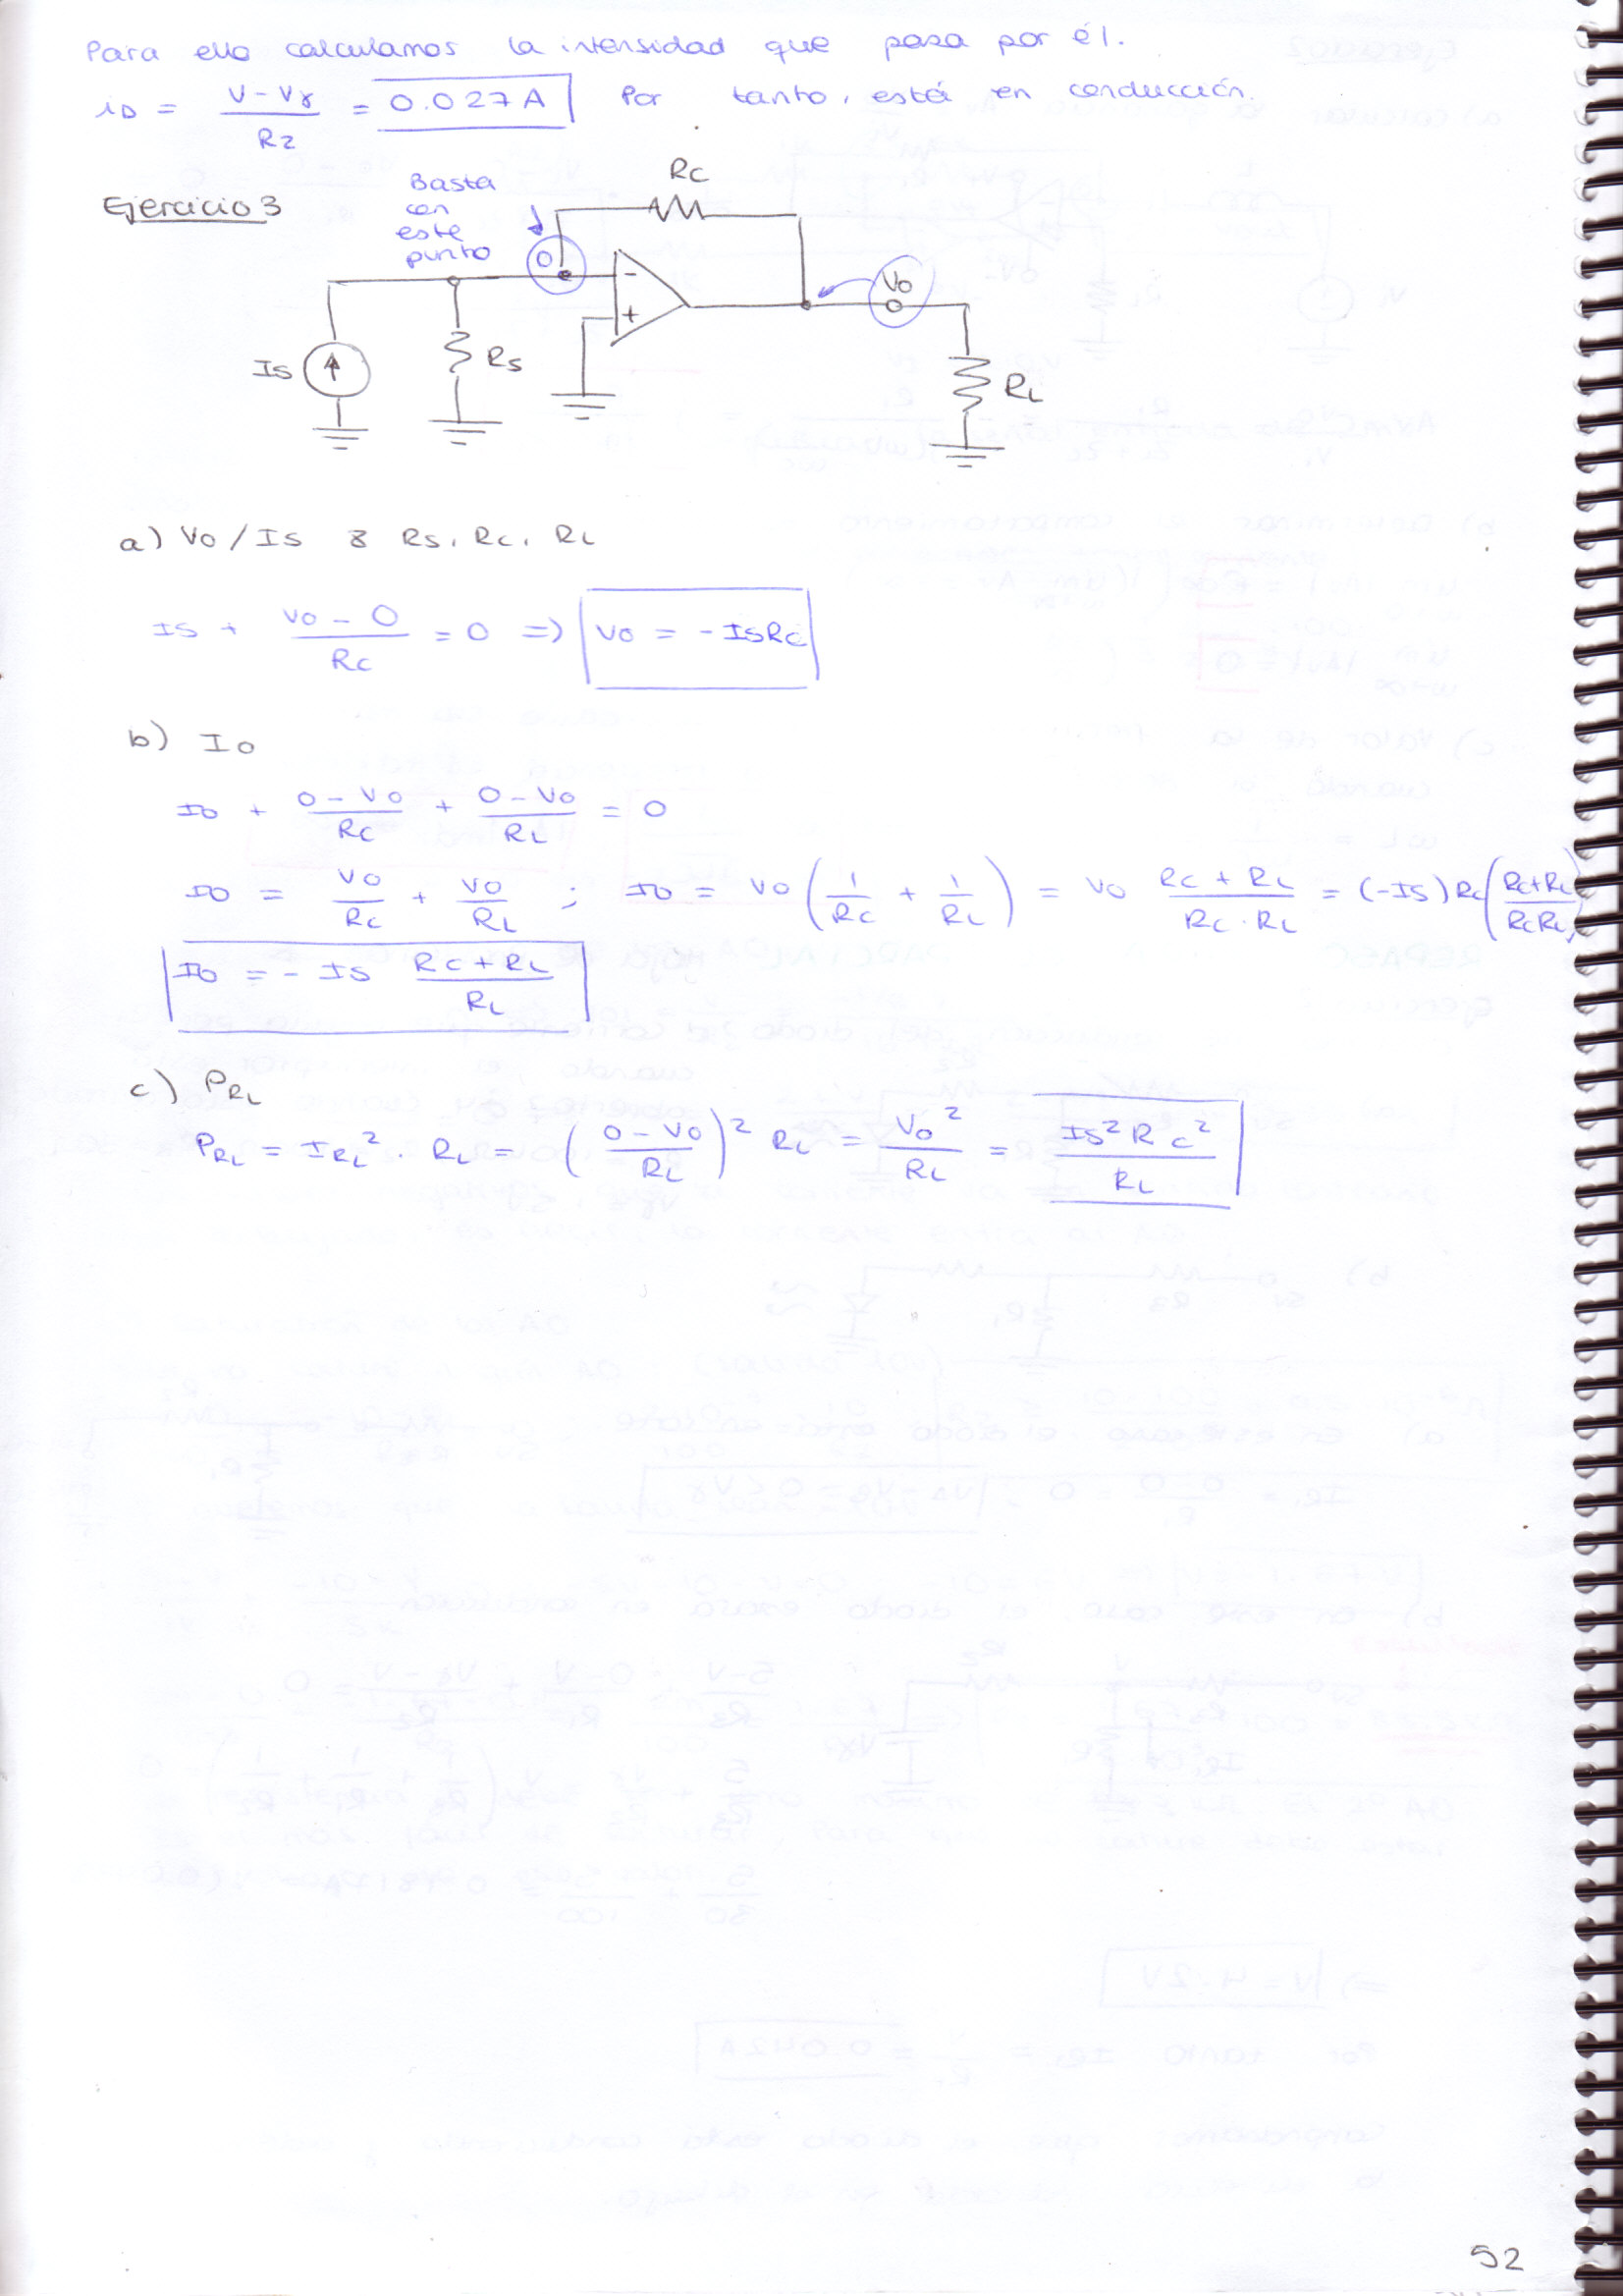 Para ello calculamos la intensidad que pasa por él.
iD = (V - Vγ)/R2 = 0.027A Por tanto, está en conducción.
Ejercicio 3
Basta
con
este
punto
RC
0
-
+
Vo
Is
Rs
RL
a) Vo/Is 8 Rs, Rc, RL
Is + (Vo - 0)/Rc = 0 => Vo = - IsRc
b) Io
Io + (0 - Vo)/Rc + (0 - Vo)/RL = 0
Io = Vo/Rc + Vo/RL ; Io = Vo (1/Rc + 1/RL) = Vo (Rc + RL)/(Rc · RL) = (-Is) Rc ((Rc+RL)/(RcRL))
Io = - Is (Rc + RL)/RL
c) PRL
PRL = IRL² · RL = ((0 - Vo)/RL)² RL = Vo²/RL = Is² Rc²/RL
52